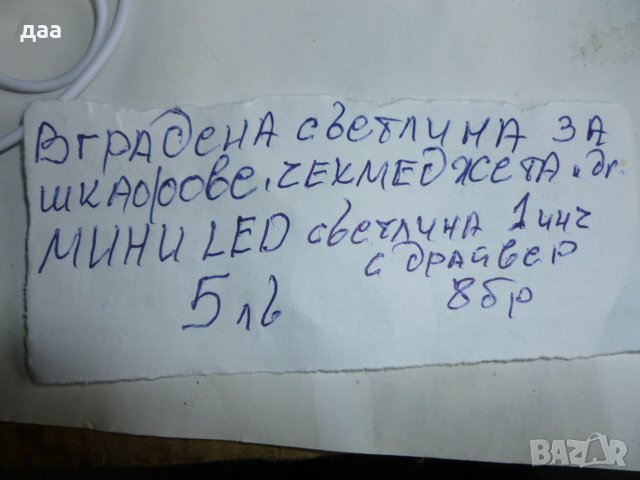 даа
Вградена светлина за
шкафове, чекмеджета и др.
мини LED светлина 1 инч
с драйвер
5 лв
8 бр
BAZAR